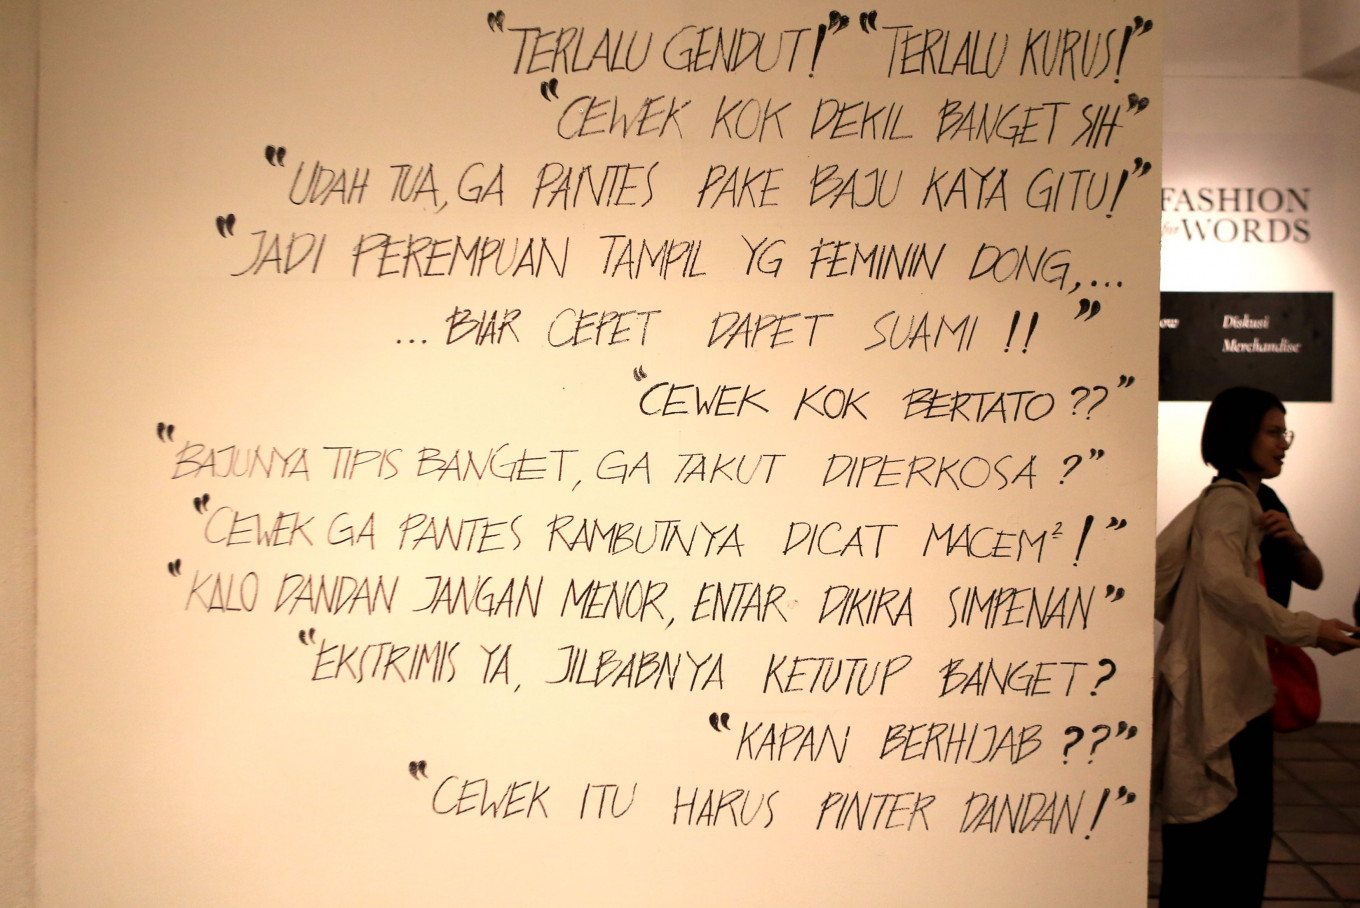 "TERLALU GENDUT!" "TERLALU KURUS!"
"CEWEK KOK DEKIL BANGET SIH"
"UDAH TUA, GA PANTES PAKE BAJU KAYA GITU!"
"JADI PEREMPUAN TAMPIL YG FEMININ DONG,...
...BIAR CEPET DAPET SUAMI !!"
"CEWEK KOK BERTATO ??"
"BAJUNYA TIPIS BANGET, GA TAKUT DIPERKOSA ?"
"CEWEK GA PANTES RAMBUTNYA DICAT MACEM² !"
"KALO DANDAN JANGAN MENOR, ENTAR DIKIRA SIMPENAN"
"EKSTRIMIS YA, JILBABNYA KETUTUP BANGET?
"KAPAN BERHIJAB ??"
"CEWEK ITU HARUS PINTER DANDAN!"
FASHION
for WORDS
Diskusi
Merchandise